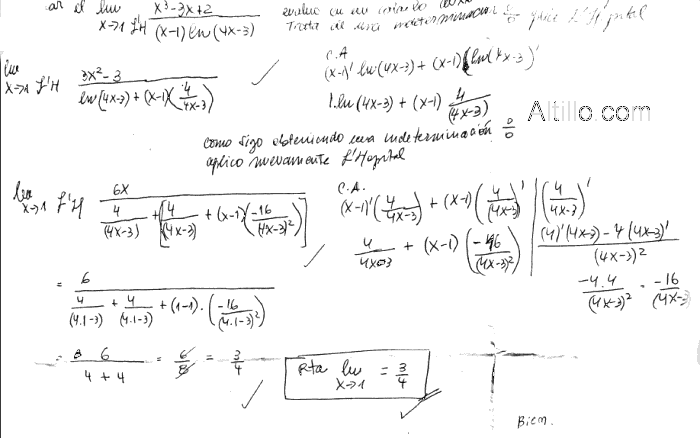 ar el lim x→1 L'H x³-3x+2 / (x-1) ln (4x-3)
Trata de una indeterminacion 0/0 aplico L'Hopital
lim x→1 L'H 3x²-3 / ln(4x-3) + (x-1)(4/4x-3)
C.A
(x-1)' ln(4x-3) + (x-1)(ln(4x-3)'
1.ln(4x-3) + (x-1) 4/(4x-3)
Altillo.com
como sigo obteniendo una indeterminación 0/0
aplico nuevamente L'Hopital
lim x→1 L'H 6x / 4/(4x-3) + [4/(4x-3) + (x-1)(-16/(4x-3)²)]
C.A.
(x-1)'(4/4x-3) + (x-1)(4/(4x-3))'
4/4x-3 + (x-1)(-16/(4x-3)²)
(4/4x-3)'
(4)'(4x-3)-4(4x-3)' / (4x-3)²
-4.4/(4x-3)² = -16/(4x-3)
= 6 / 4/(4.1-3) + 4/(4.1-3) + (1-1).(-16/(4.1-3)²)
= 6 / 4+4 = 6/8 = 3/4
Rta lim x→1 = 3/4
Biem.